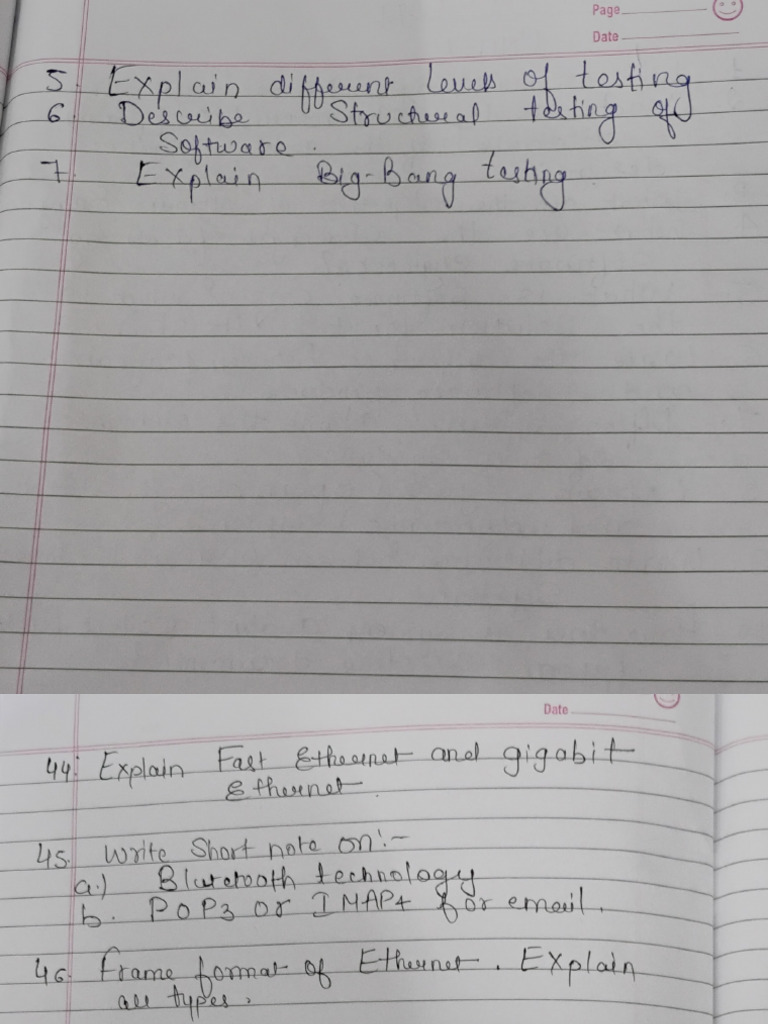 Page
Date
5. Explain different levels of testing
6. Describe Structural testing of
Software.
7. Explain Big-Bang testing
Date
44. Explain Fast Ethernet and gigabit
Ethernet.
45. Write Short note on:-
a.) Bluetooth technology
b. POP3 or IMAP4 for email.
46. Frame format of Ethernet. Explain
all types.